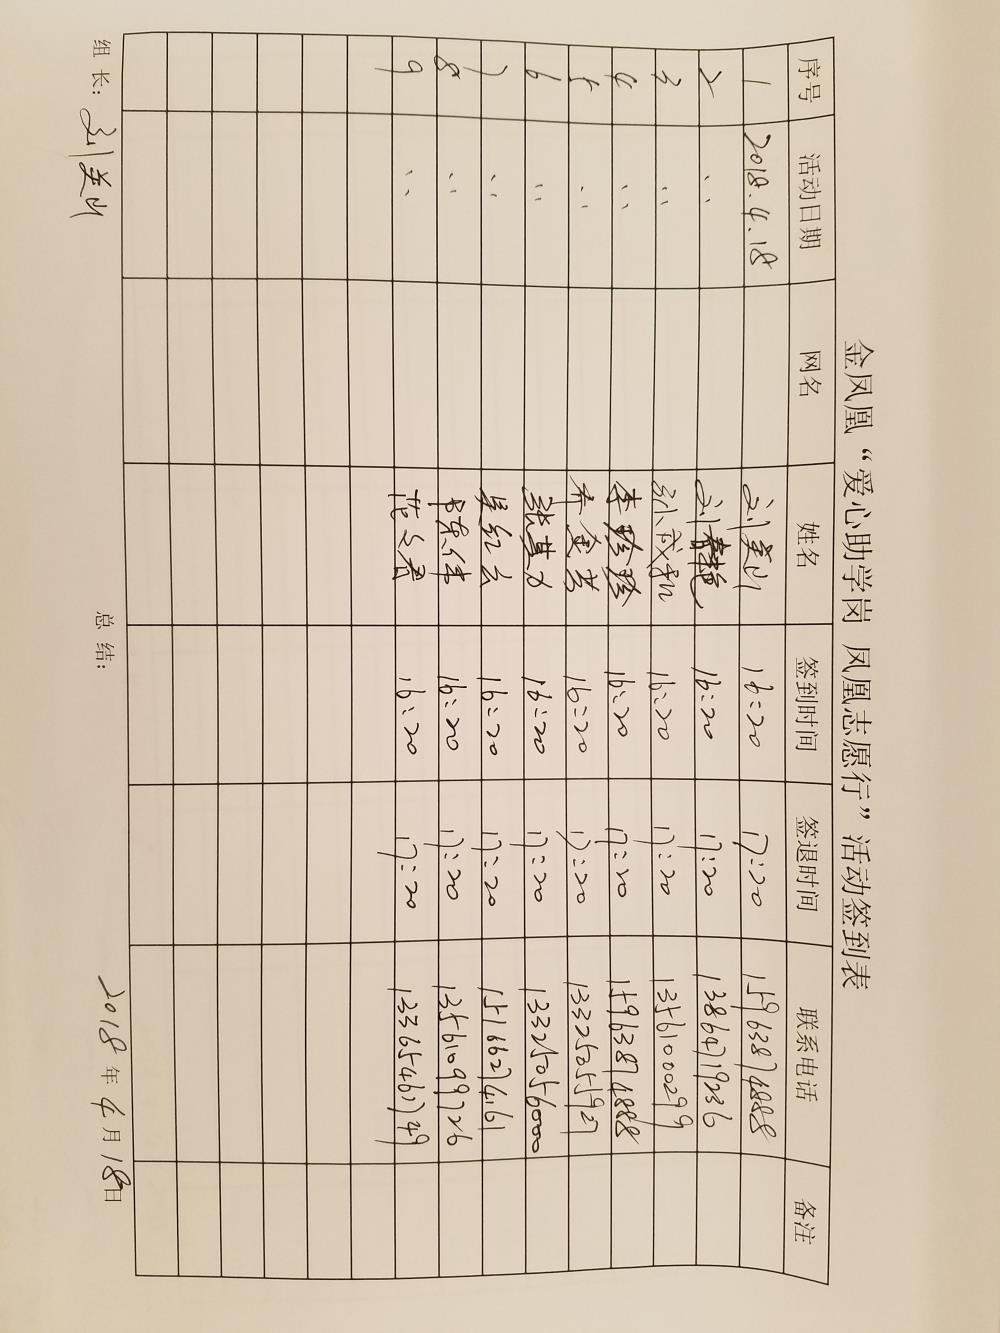 金凤凰“爱心助学岗 凤凰志愿行”活动签到表
序号 活动日期 网名 姓名 签到时间 签退时间 联系电话 备注
1 2018.4.18 刘美山 16:20 17:20 15963874888
2 〃 刘春艳 16:20 17:20 13864719236
3 〃 孙成和 16:20 17:20 13561000299
4 〃 李珍珍 16:20 17:20 15963874888
5 〃 16:20 17:20 13325055927
6 〃 张其力 16:20 17:20 13325056000
7 〃 吴红云 16:20 17:20 15166274161
8 〃 陈伟 16:20 17:20 13561099726
9 〃 16:20 17:20 13365461749
组长: 刘美山 总结: 2018年4月18日